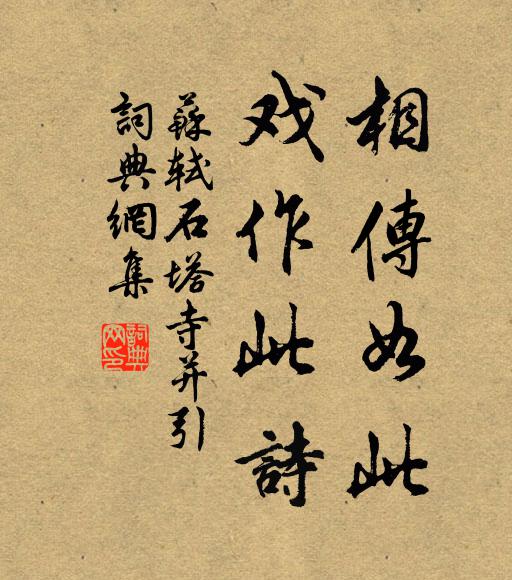 相傳如此
戏作此詩
蘇軾石塔寺并引
詞典網集
詞典网印